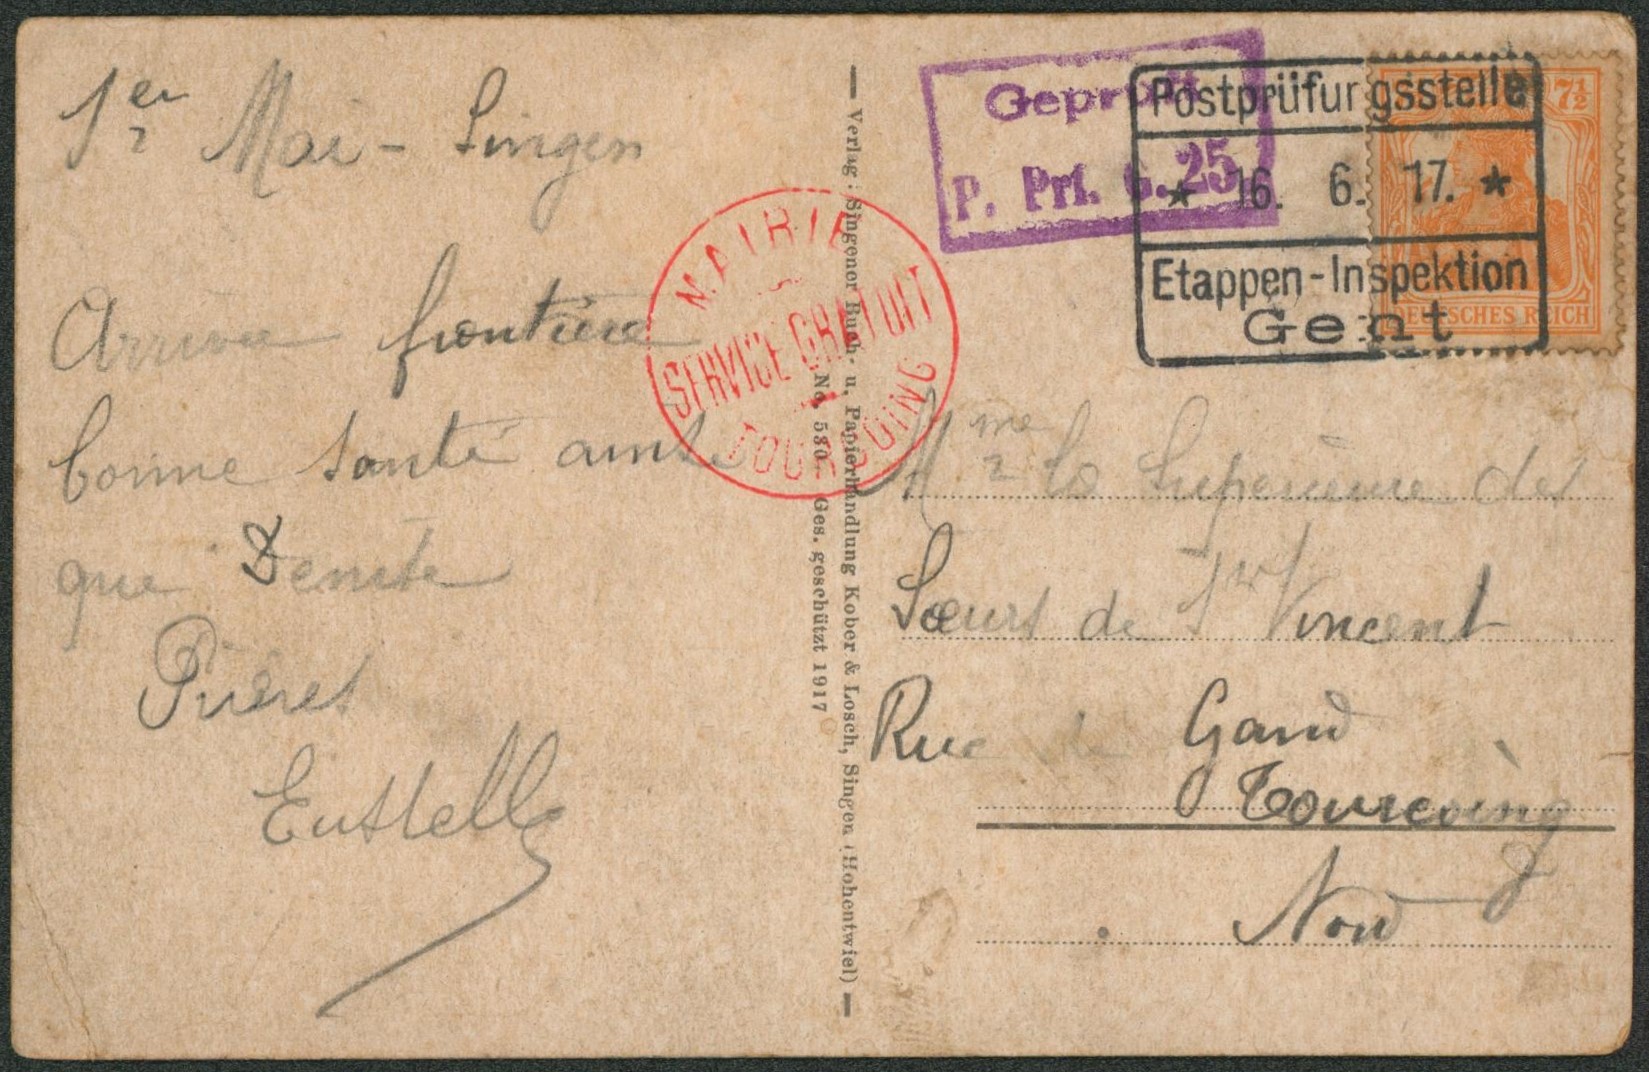 1er Mai - Singen
Arrivée frontière
bonne santé ainsi
que Denise
Prières
Eustelle
MAIRIE
SERVICE GRATUIT
TOURCOING
Verlag: Singener Buch- u. Papierhandlung Kober & Losch, Singen (Hohentwiel)
No. 530. Ges. geschützt 1917
Geprüft
P. Prf. G. 25
Postprüfungsstelle
★ 16. 6. 17. ★
Etappen-Inspektion
Gent
7½
DEUTSCHES REICH
Mme la Supérieure des
Sœurs de St Vincent
Rue de Gand
Tourcoing
Nord